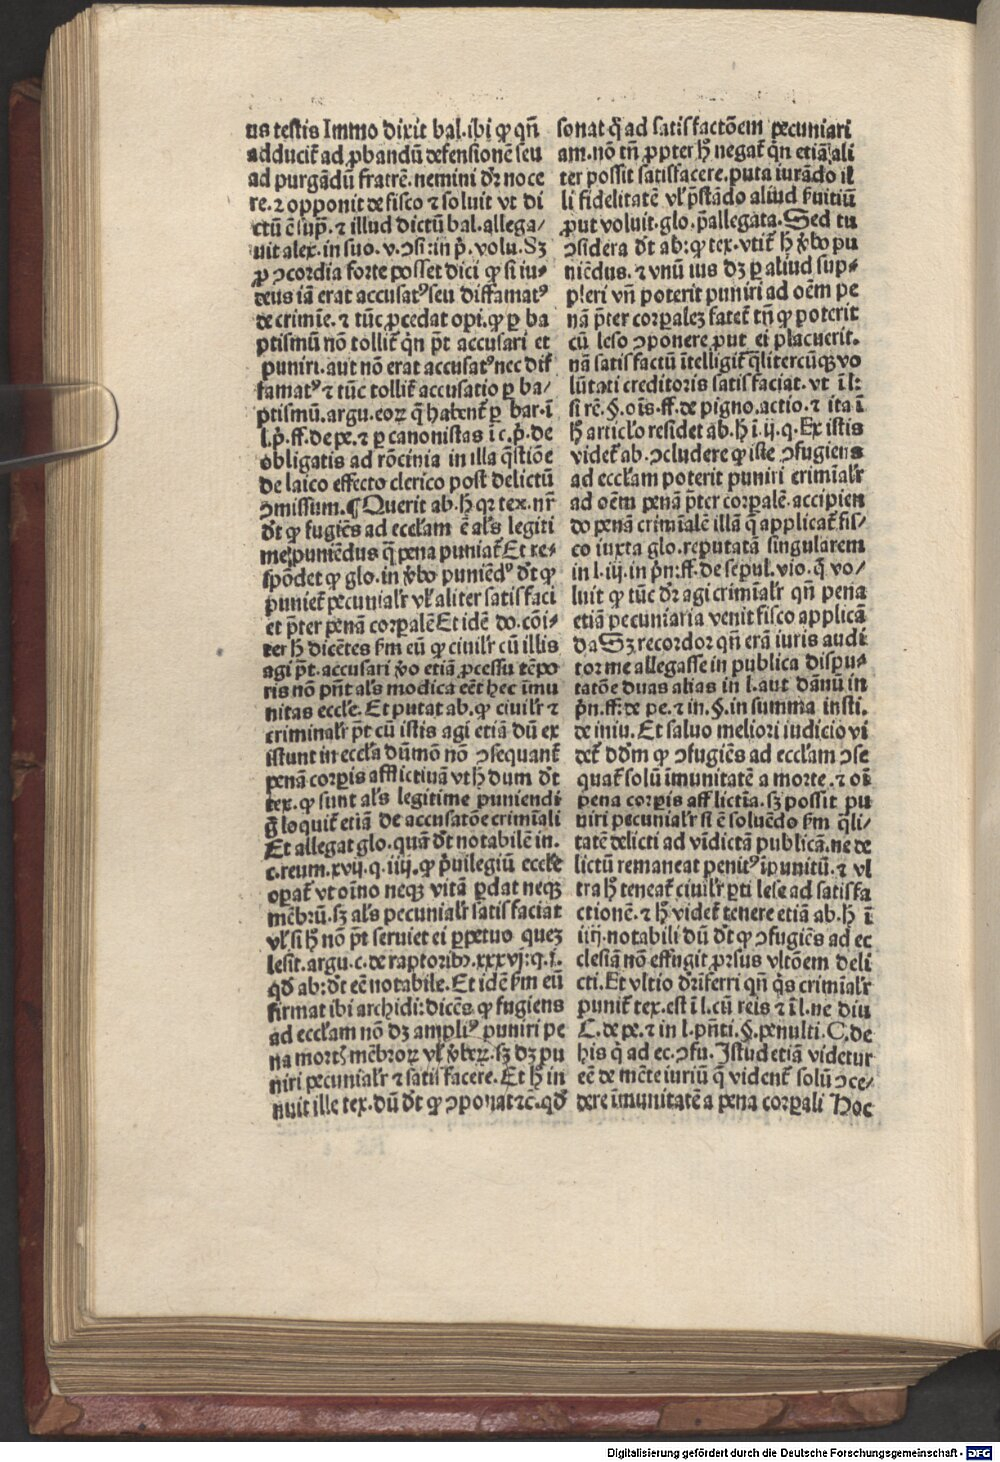 us testis Immo dixit bal.ibi ꝙ qn̄
adducit᷑ ad ꝓbandū defensionē seu
ad purgādū fratrē.nemini dr̄ noce
re.⁊ opponit de fisco ⁊ soluit vt di
ctū ē sup̄.⁊ illud dictū bal.allega/
uit alex.in suo.v.ↄsi:in p̄.volu.Sꝫ
ꝓ ↄcordia forte posset dici ꝙ si iu-
deus iā erat accusatꝰ seu diffamatꝰ
de crimīe.⁊ tūc ꝓcedat opi.ꝙ ꝑ ba
ptismū nō tollit᷑ qn̄ p̄t accusari et
puniri.aut nō erat accusatꝰ nec dif
famatꝰ ⁊ tūc tollit᷑ accusatio ꝑ ba/
ptismū.argu.eoꝝ q̄ habent᷑ ꝑ bar.ī
l.p̄.ff.de pe.⁊ ꝑ canonistas ī c.p̄.de
obligatis ad rōcinia in illa q̄stiōe
de laico effecto clerico post delictū
ↄmissum.¶ Querit ab.h̄ qꝛ tex.nr̄
dt̄ ꝙ fugiēs ad eccl'am ē al's legiti
me puniēdus q̄ pena puniat᷑ Et re-
spōdet ꝙ glo.in v̄bo puniēdꝰ dt̄ ꝙ
puniet᷑ pecunial'r vl' aliter satisfaci
et p̄ter penā corꝑalē Et idē do.cōi-
ter h̄ dicētes km̄ eū ꝙ ciuil'r cū illis
agi p̄t.accusari v̄o etiā ꝓcessu tēpo
ris nō pn̄t al's modica eēt hec īmu
nitas eccl'e.Et putat ab.ꝙ ciuil'r ⁊
criminal'r p̄t cū istis agi etiā dū ex
istunt in eccl'a dūmō nō ↄsequant᷑
penā corꝑis afflictiuā vt h̄ dum dt̄
tex.ꝙ sunt al's legitime puniendi
ḡ loquit᷑ etiā de accusatōe crimīali
Et allegat glo.quā dt̄ notabilē in.
c.reum.xvij.q.iiij.ꝙ p̄uilegiū eccl'e
operat᷑ vt oīno neqꝫ vitā ꝑdat neqꝫ
mēbrū.sꝫ al's pecunial'r satisfaciat
vl' si h̄ nō p̄t seruiet ei ꝑpetuo queꝫ
lesit.argu.c.de raptoribꝰ.xxxvj:q.i.
qd̄ ab:dt̄ eē notabile.Et idē km̄ eū
firmat ibi archidi:dicēs ꝙ fugiens
ad eccl'am nō dꝫ ampliꝰ puniri pe
na mortꝭ mēbroꝝ vl' v̄beꝝ.sꝫ dꝫ pu
niri pecunial'r ⁊ satisfacere.Et h̄ in
nuit ille tex.dū dt̄ ꝙ ↄponat ⁊c̄.qd̄
sonat q̄ ad satisfactōem pecuniari
am.nō tn̄ ꝓpter h̄ negat᷑ qn̄ etiā ali
ter possit satisfacere.puta iurādo il
li fidelitatē vl' p̄stādo aliud ẜuitiū
ꝓut voluit.glo.p̄allegata.Sed tu
ↄsidera dt̄ ab:ꝙ tex.vtit᷑ h̄ v̄bo pu
niēdus.⁊ vnū ius dꝫ ꝑ aliud sup-
pleri vn̄ poterit puniri ad oēm pe
nā p̄ter corꝑaleꝫ fatet᷑ tn̄ ꝙ poterit
cū leso ↄponere ꝓut ei placuerit.
nā satisfactū ītelligit᷑ q̄litercūqꝫ vo
lūtati creditoris satisfaciat.vt ī l:
si rē.§.oīs.ff.de pigno.actio.⁊ ita ī
h̄ articl'o residet ab.h̄ ī.ij.q.Ex istis
videt᷑ ab.ↄcludere ꝙ iste ↄfugiens
ad eccl'am poterit puniri crimīal'r
ad oēm penā p̄ter corꝑalē.accipien
do penā crimīalē illā q̄ applicat᷑ fis/
co iuxta glo.reputatā singularem
in l.iij.in p̄n:ff.de sepul.vio.q̄ vo/
luit ꝙ tūc dr̄ agi crimīal'r qn̄ pena
etiā pecuniaria venit fisco applicā
da Sꝫ recordor qn̄ erā iuris audi
tor me allegasse in publica dispu-
tatōe duas alias in l.aut dānū in
p̄n.ff:de pe.⁊ in.§.in summa insti.
de iniu.Et saluo meliori iudicio vi
det᷑ dd̄m ꝙ ↄfugiēs ad eccl'am ↄse
quat᷑ solū īmunitatē a morte.⁊ oī
pena corꝑis afflictīa.sꝫ possit pu
niri pecunial'r si ē soluēdo km̄ q̄li/
tatē delicti ad vīdictā publicā.ne de
lictū remaneat penitꝰ īpunitū.⁊ vl
tra h̄ teneat᷑ ciuil'r ꝑti lese ad satisfa
ctionē.⁊ h̄ videt᷑ tenere etiā ab.h̄ ī
iiij.notabili dū dt̄ ꝙ ↄfugiēs ad ec
clesiā nō effugit ꝓrsus vltōem deli
cti.Et vltio dr̄ īferri qn̄ q̄s crimīal'r
punit᷑ tex.est ī l.cū reis ⁊ ī l.ne diu
C.de pe.⁊ in l.pn̄ti.§.penulti.C.de
his q̄ ad ec.ↄfu.Istud etiā videtur
eē de mēte iuriū q̄ vident᷑ solū ↄce/
dere īmunitatē a pena corꝑali Hoc
Digitalisierung gefördert durch die Deutsche Forschungsgemeinschaft - DFG